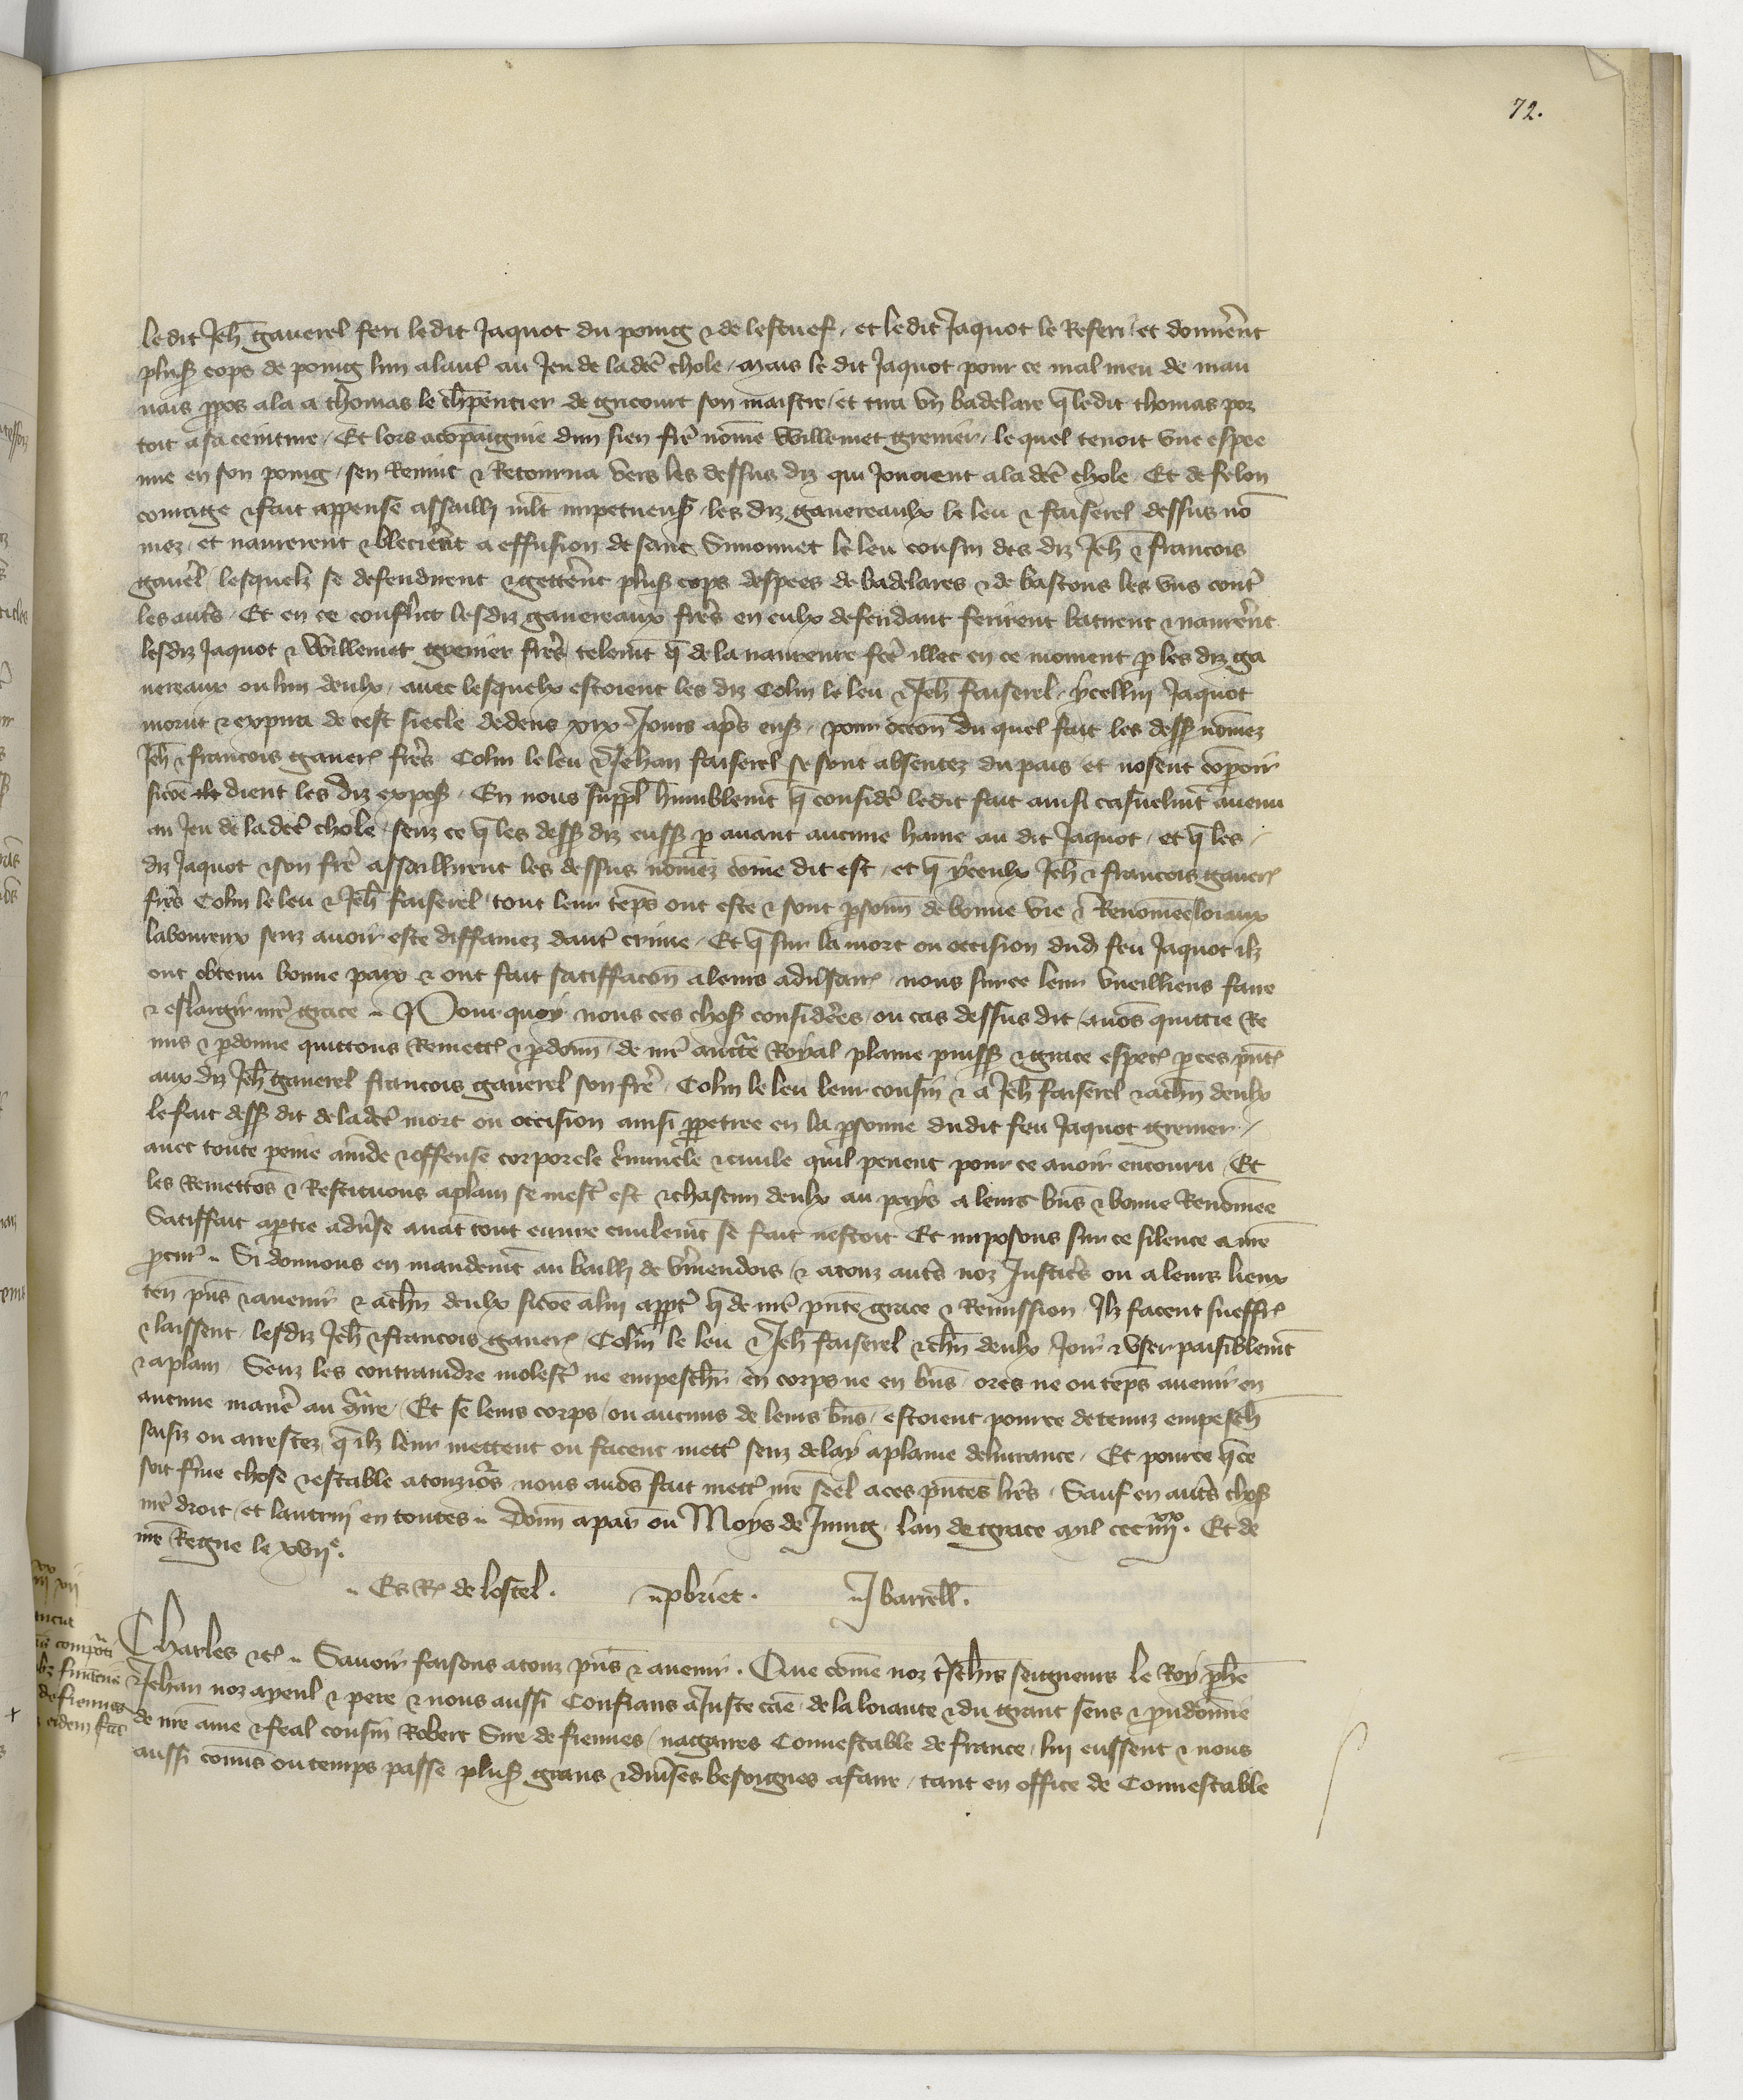 72.
ledit Jeh̄ gauerel feri ledit Jaquot du poing & de lestuef, et ledit Jaquot le Referi, et donnerēt
plus̄ cops de poing lun alaut̄ au Jeu de lad̄cē chole, Mais le dit Jaquot pour ce mal meu de mau
uais p̄pos ala a thomas le ch̄pentier de gricourt son maistre, et tira vn badelare q̄ ledit thomas por
toit a sa ceinture, Et lors acōpaignie dun sien frē nōme Willemet grenier, le quel tenoit vne espee
nue en son poing, sen Reuint & Retourna vers les dessus diz qui Jouoient a la dc̄e chole, Et de felon
courage & fait appense assailli ml̄t impetueus̄, les diz gauereaulx le leu & faiserel dessus nō
mez, et naurerent & blecierēt a effusion de sanc Simonnet le leu cousin des diz Jeh̄ & francois
gauēl, lesquelz se defendirent & getterēt plus̄ cops despees de badelares & de bastons les vns cont̄
les aut̄s, Et en ce conflict lesdiz gauereaux frēs en eulx defendant ferirent batirent & naurerēt
lesdiz Jaquot & Willemet grenier frēs telemt̄ q̄ de la naureure fc̄e illec en ce moment p̄ les diz ga
uereaux ou lun deulx, auec lesquelx estoient les diz Colin le leu & Jeh̄ faiserel, ycellui Jaquot
morut & expira de cest siecle dedens xix Jours ap̄s ens̄, pour occōn du quel fait les dess̄ nōmez
Jeh̄ & francois gauer̄ frēs Colin le leu & Jehan faiserel se sont absentez du pais et nosent cōparoir
sicōe ilz dient les diz expos̄, En nous suppl̄ humblemt̄ q̄ consider̄ ledit fait ainsi casuelmt̄ auenu
au Jeu de la dc̄e chole, senz ce q̄ les dess̄ diz euss̄ p̄ auant aucune haine au dit Jaquot, et q̄ les
diz Jaquot & son frē assaillirent les dessus nōmez cōme dit est, et q̄ yceulx Jeh̄ & francois gauer̄
frēs Colin le leu & Jeh̄ faiserel, tout leur tēps ont este & sont p̄sonn̄ de bonne vie & Renōmee loiaux
laboureux senz auoir este diffamez daut̄ crime, Et q̄ sur la mort ou occision dud̄ feu Jaquot ilz
ont obtenu bonne paix & ont fait satiffacōn a leurs adūsair̄, nous sur ce leur vueilliens faire
& eslargir nr̄e grace, Pour quoy nous ces chos̄ considerees, ou cas dessus dit, auōs quittie Re
mis & p̄donne quittons Remett̄ & p̄donn̄, de nr̄e auct̄e Royal plaine puiss̄ & grace espec̄ p̄ ces pn̄t̄
aux diz Jeh̄ gauerel francois gauerel son frē, Colin le leu leur cousin & a Jeh̄ faiserel & a ch̄n deulx
le fait dess̄ dit de la dc̄e mort ou occision ainsi p̄petree en la p̄sonne dudit feu Jaquot grenier,
auec toute peine am̄de & offense corporele c̄minele & ciuile quil peuent pour ce auoir encouru, Et
les Remettōs & Restituons a plain se mest̄ est & chascun deulx au pays a leurs bn̄s & bonne Renōmee
Satiffait a p̄tie aduse auāt tout euure ciuilemt̄ se fait nestoit Et imposons sur ce silence a nr̄e
p̄cur̄, Si donnons en mandemt̄ au bailli de v̄mendois, & a touz aut̄s noz Justic̄s ou a leurs lieux
ten̄ pn̄s & auenir & a ch̄n deulx sicōe a lui appt̄ q̄ de nr̄e pn̄te grace & Remission, Ilz facent sueffr̄
& laissent, lesdiz Jeh̄ & francois gauer̄, Colin le leu & Jeh̄ faiserel & ch̄n deulx Joir & vser paisiblemt̄
& a plain, Senz les contraindre molest̄ ne empesch̄r en corps ne en bn̄s, ores ne ou tēps auenir en
aucune manēe au 9tr̄e, Et se leurs corps ou aucuns de leurs bn̄s, estoient pour ce detenuz empesch̄
saisiz ou arrestez, q̄ ilz leur mettent ou facent mett̄ senz delay a plaine deliurance, Et pource q̄ ce
soit f̄me chose & estable a touziōs, nous auōs fait mett̄ nr̄e seel a ces pn̄tes lr̄es, Sauf en aut̄s chos̄
nr̄e droit, et lautrui en toutes, Donn̄ a par̄ ou Moys de Juing, lan de grace mil ccc iiii xx. Et de
nr̄e Regne le xvii e.
Es Req̄ de lostel. p briet. J barrell̄.
Charles &c̄, Sauoir faisons a touz pn̄s & auenir, Que cōme noz t̄sch̄rs seigneurs le Roy ph̄e
& Jehan noz ayeul & pere & nous aussi Confians a Juste cāe, de la loiaute & du grant sens & prudomie
de nr̄e ame & feal cousin Robert Sire de fiennes, nagaires Connestable de france, lui eussent & nous
aussi cōmis ou temps passe plus̄ grans & diūses besoignes a faire, tant en office de Connestable